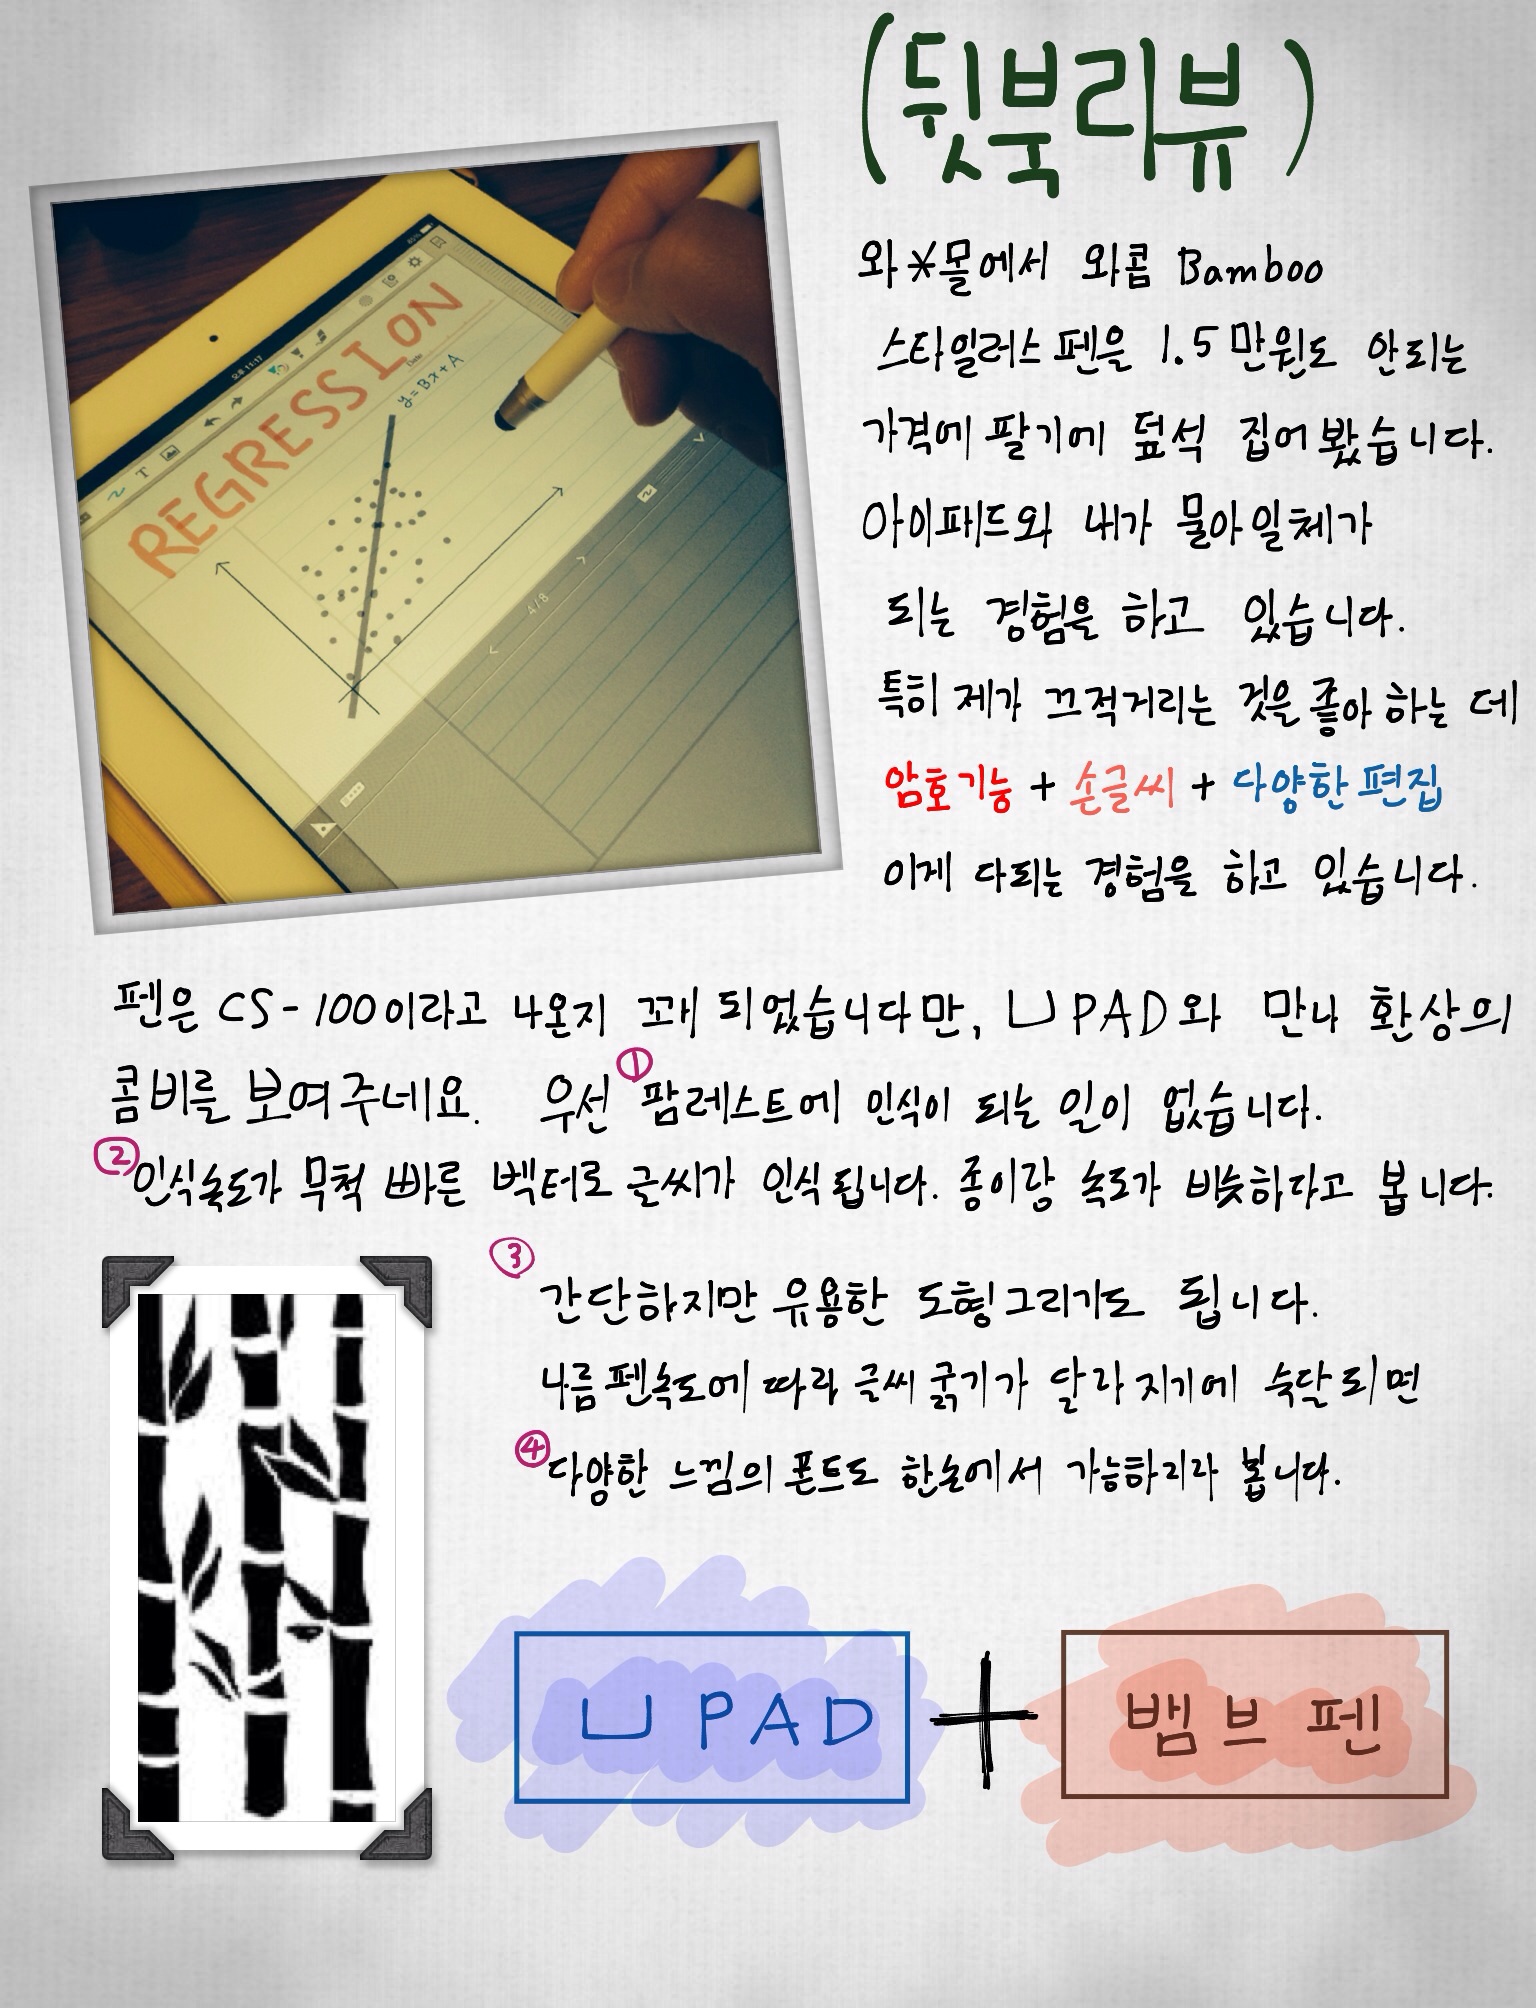 (뒷북리뷰)
와*몰에서 와콤 Bamboo
스타일러스 펜을 1.5만원도 안되는
가격에 팔기에 덥석 집어봤습니다.
아이패드와 내가 물아일체가
되는 경험을 하고 있습니다.
특히 제가 끄적거리는 것을 좋아하는 데
암호기능 + 손글씨 + 다양한 편집
이게 다되는 경험을 하고 있습니다.
REGRESSION
y = Bx + A
4/8
펜은 CS-100이라고 나온지 꽤 되었습니다만, UPAD와 만나 환상의
콤비를 보여주네요. 우선 ①팜레스트에 인식이 되는 일이 없습니다.
②인식속도가 무척 빠른 벡터로 글씨가 인식됩니다. 종이랑 속도가 비슷하다고 봅니다.
③
간단하지만 유용한 도형그리기도 됩니다.
나름 펜속도에 따라 글씨 굵기가 달라지기에 숙달되면
④다양한 느낌의 폰트도 한눈에서 가능하리라 봅니다.
UPAD + 뱀브펜